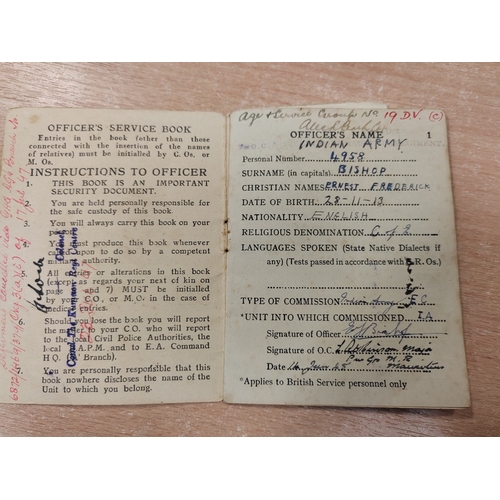 OFFICER'S SERVICE BOOK
Entries in the book (other than those
connected with the insertion of the names
of relatives) must be initialled by C. Os. or
M. Os.
INSTRUCTIONS TO OFFICER
1. THIS BOOK IS AN IMPORTANT
SECURITY DOCUMENT.
2. You are held personally responsible for
the safe custody of this book.
You will always carry this book on your
person.
You must produce this book whenever
called upon to do so by a competent
military authority.
5. All entries or alterations in this book
(except as regards your next of kin on
page and 7) MUST be initialled
by your C.O. or M.O. in the case of
medical entries.
6. Should you lose the book you will report
the matter to your C.O. who will report
to the local Civil Police Authorities, the
local A.P.M. and to E.A. Command
HQ Branch).
You are personally responsible that this
book nowhere discloses the name of the
Unit to which you belong.
Colonel
Comd. E.A. Regt Centre
Age & Service Group No 19 DV. (C)
OFFICER'S NAME 1
INDIAN ARMY
Personal Number 4958
SURNAME (in capitals) BISHOP
CHRISTIAN NAMES ERNEST FREDERICK
DATE OF BIRTH 28-11-13
NATIONALITY ENGLISH
RELIGIOUS DENOMINATION C of E
LANGUAGES SPOKEN (State Native Dialects if
any) (Tests passed in accordance with B.R. Os.)
TYPE OF COMMISSION Indian Army EC
*UNIT INTO WHICH COMMISSIONED IA
Signature of Officer
Signature of O.C.
Date 14 Jun 45 Mauritius
*Applies to British Service personnel only